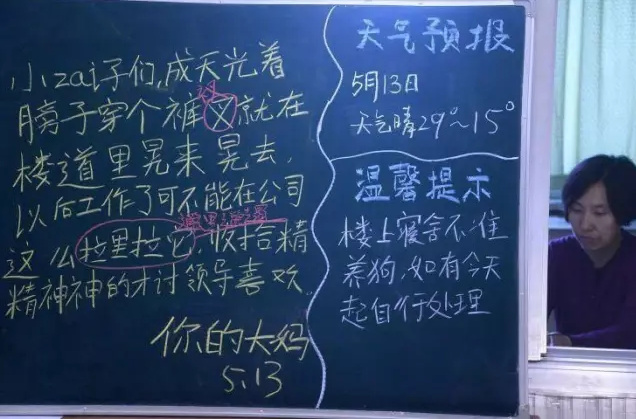 小zai子们,成天光着
膀子穿个裤叉就在
楼道里晃来晃去,
以后工作了可不能在公司
邋里邋遢
这么拉里拉它,收拾精
精神神的才讨领导喜欢.
你的大妈
5.13
天气预报
5月13日
天气晴29°~15°
温馨提示
楼上寝舍不准
养狗,如有今天
起自行处理